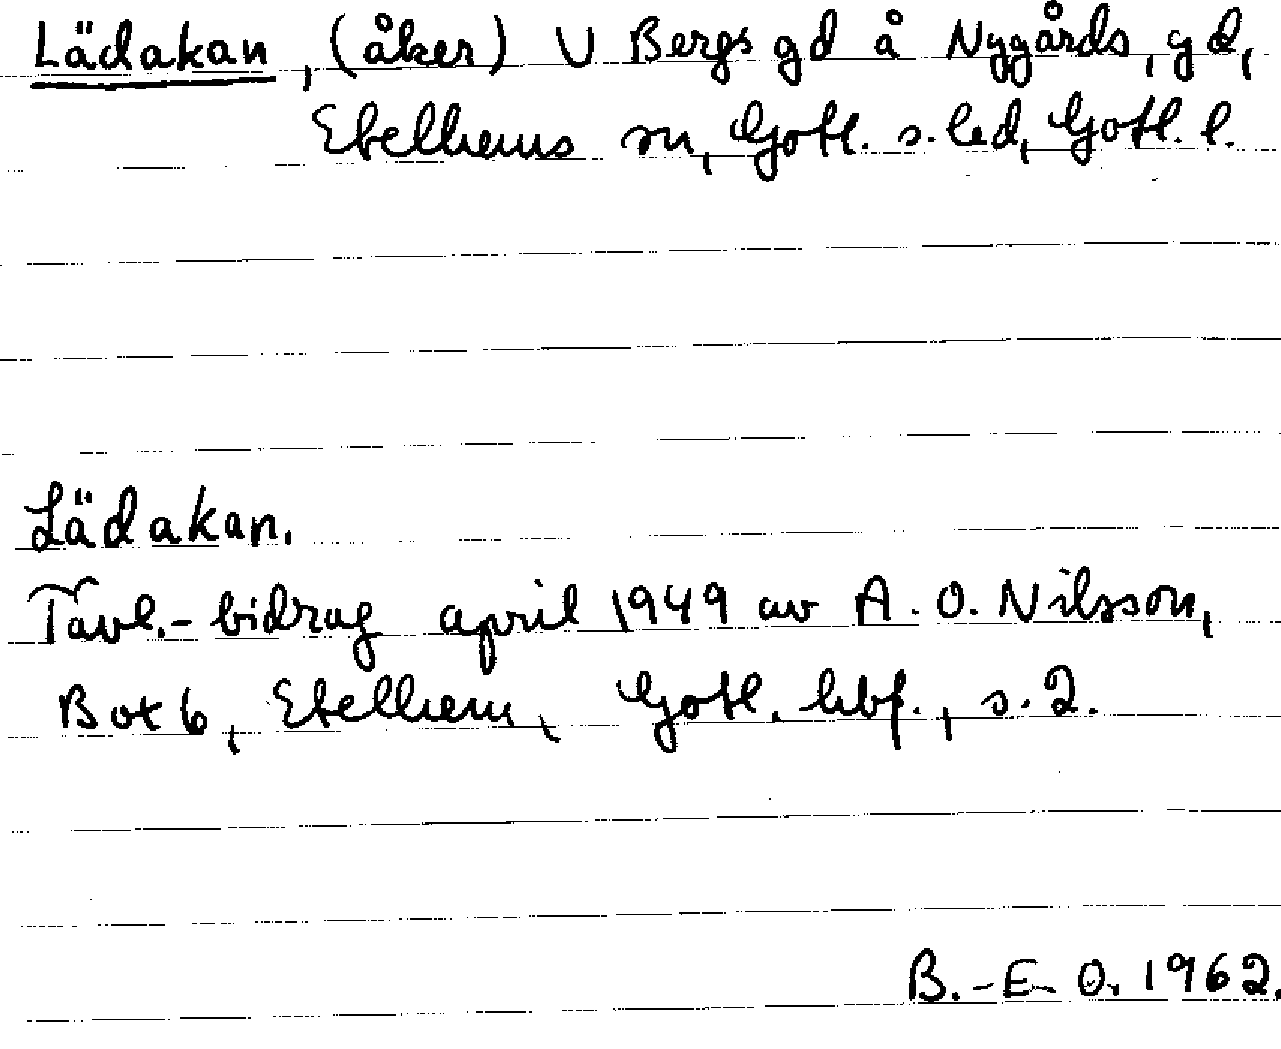 Lädakan, (åker) V Bergs gd å Nygårds, gd,
Etelhems sn, Gotl. s. led, Gotl. l.
Lädakan.
Tävl.- bidrag april 1949 av A. O. Nilsson,
Box 6, Etelhem, Gotl. hbf., s. 2.
B.-E. O. 1962.